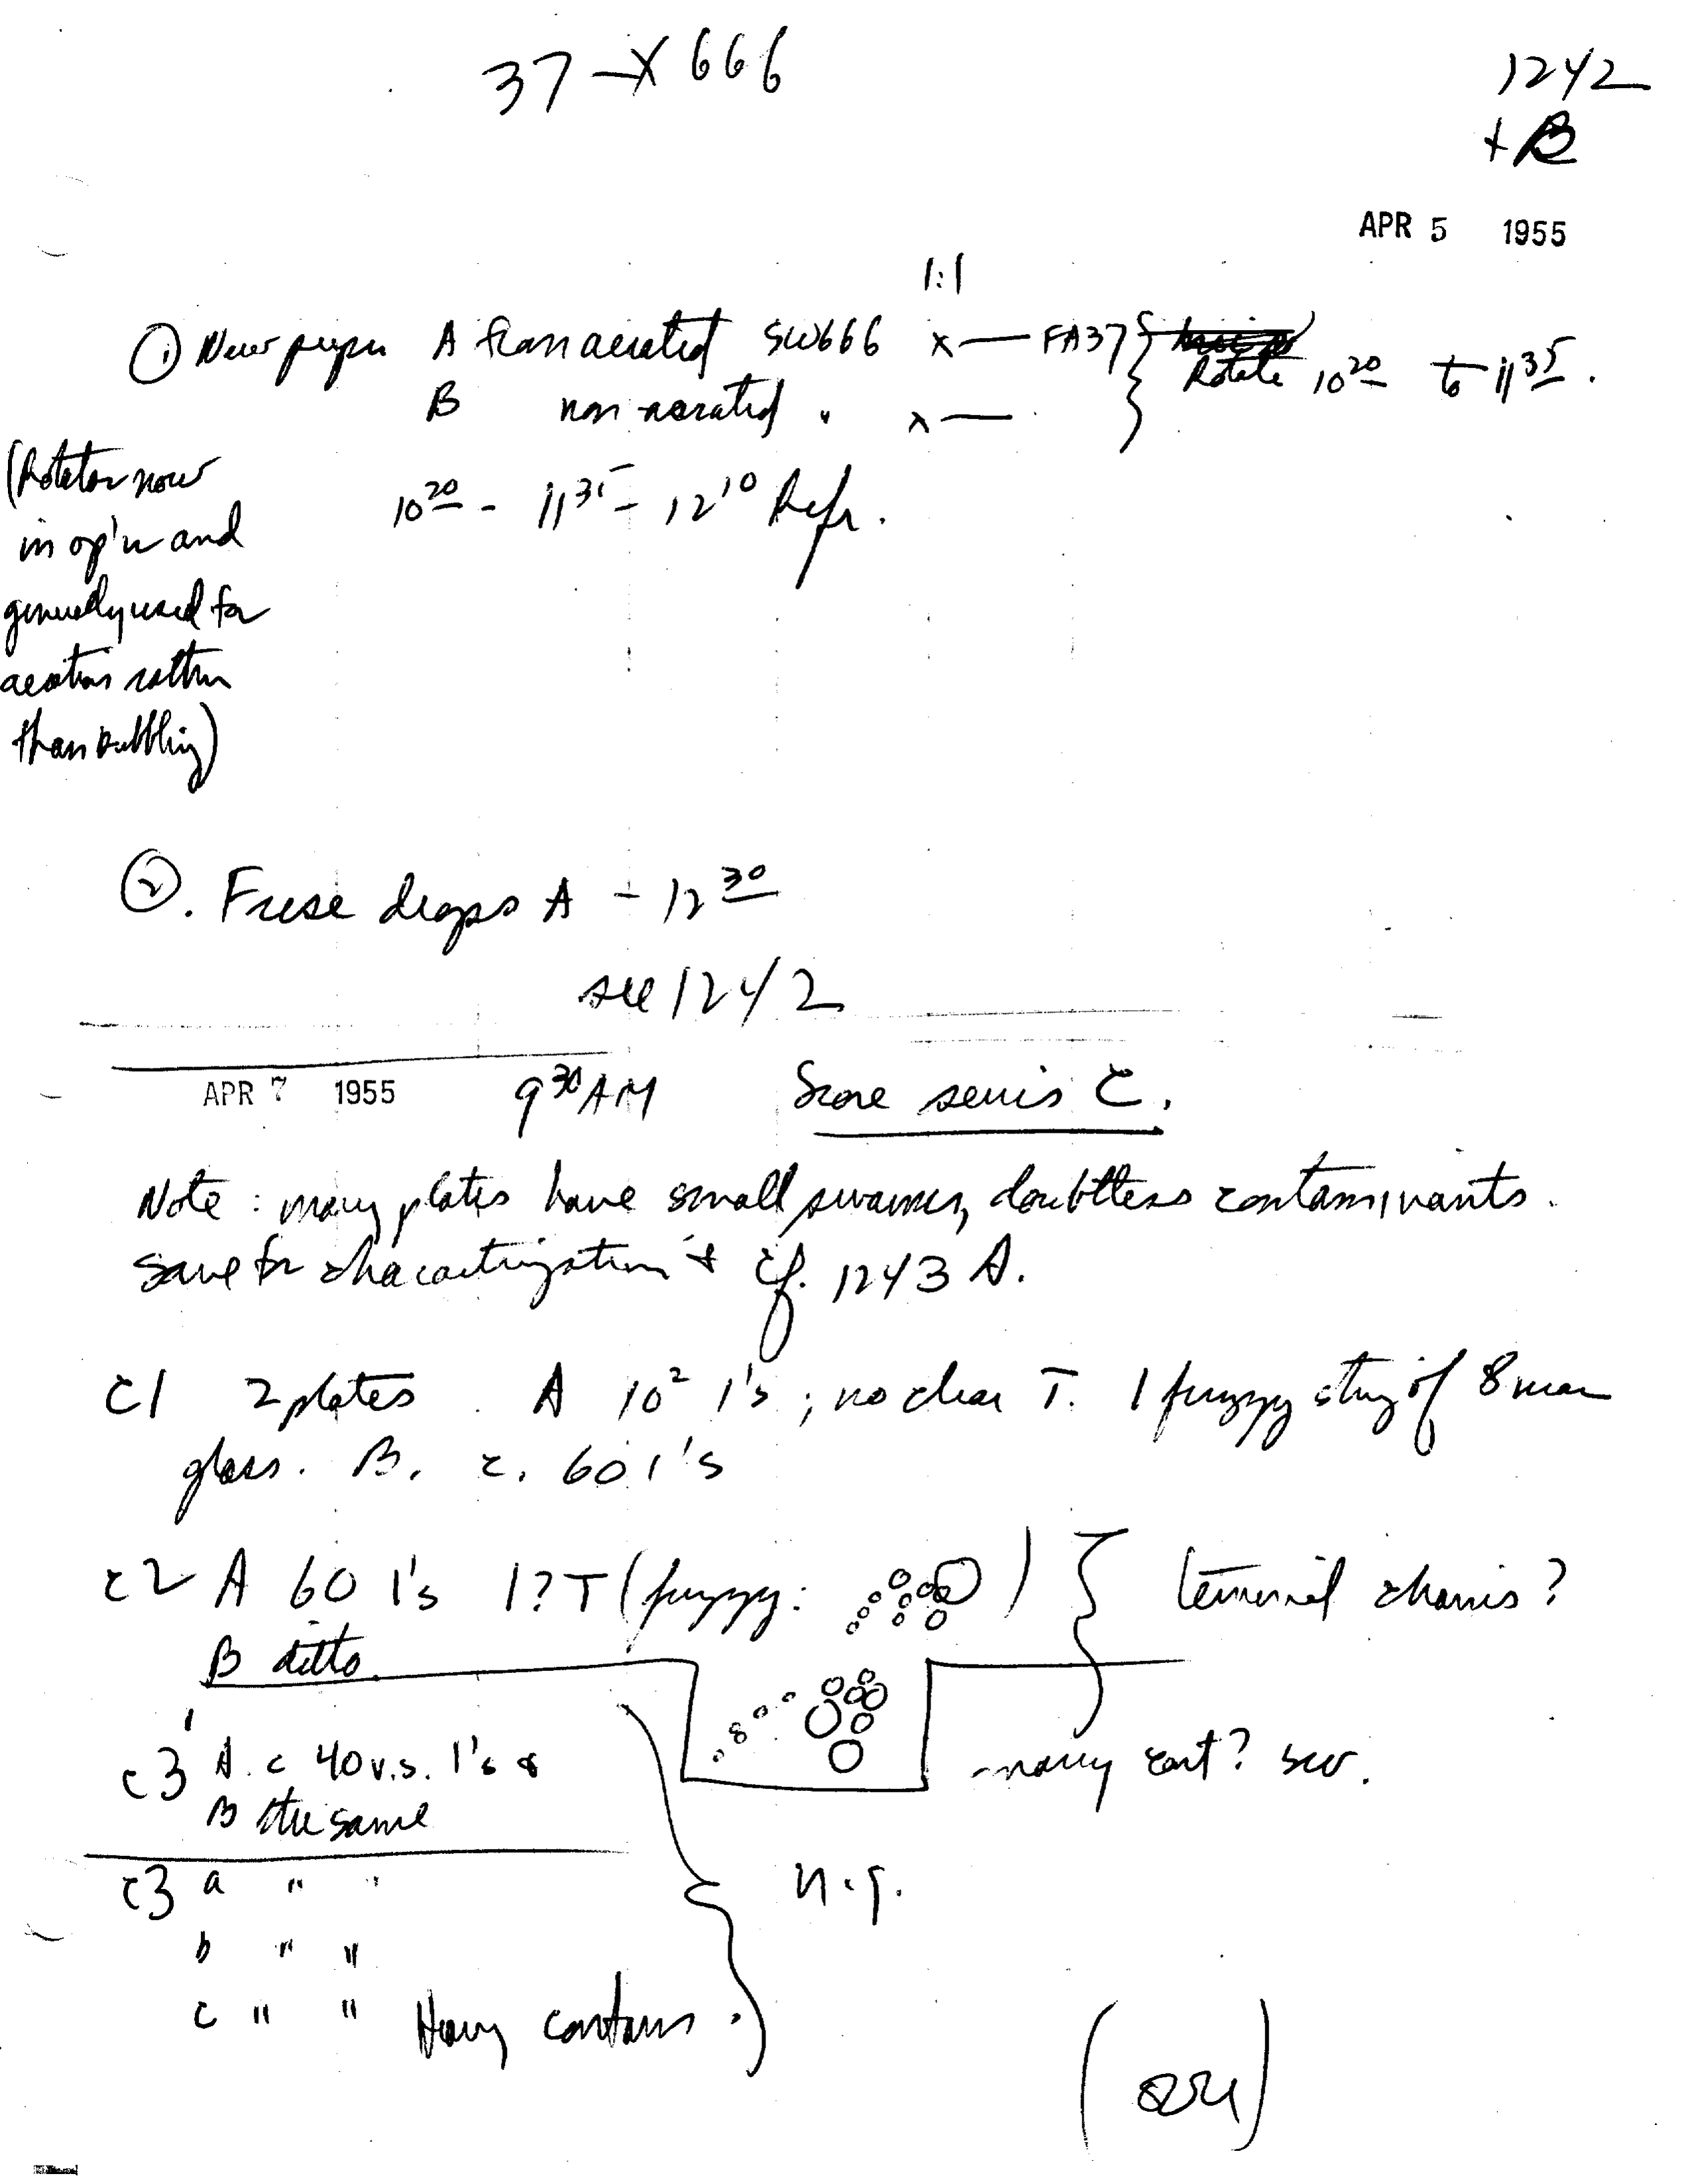 37 —X 666
1242
+ B
APR 5 1955
1:1
① New A from aerated SW666 x— FA37 } Rotate 10²⁰ to 11³⁵.
B non-aerated " x—
10²⁰ - 11³⁵ - 12¹⁰ Refr.
(Rotator now
in op'n and
generally used for
aeration rather
than bubbling)
②. Fuse drops A - 12³⁰
see 1242
APR 7 1955 9³⁰ AM Score series C.
Note: many plates have small swarms, doubtless contaminants.
Save for characterization & cf. 1243 A.
C1 2 plates. A 10² 1's; no clear T. 1 fuzzy string of 8 near
glass. B. c. 60 1's
C2 A 60 1's 1? T (fuzzy: ) } terminal chains?
B ditto.
C3' A. c 40 v.s. 1's
B the same
many cont? sw.
C3 a " "
n.g.
b " "
c " " Heavy contams.